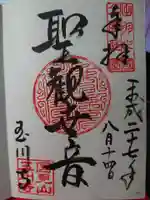 奉拝
平成二十七年
八月十四日
聖観世音
玉川寺